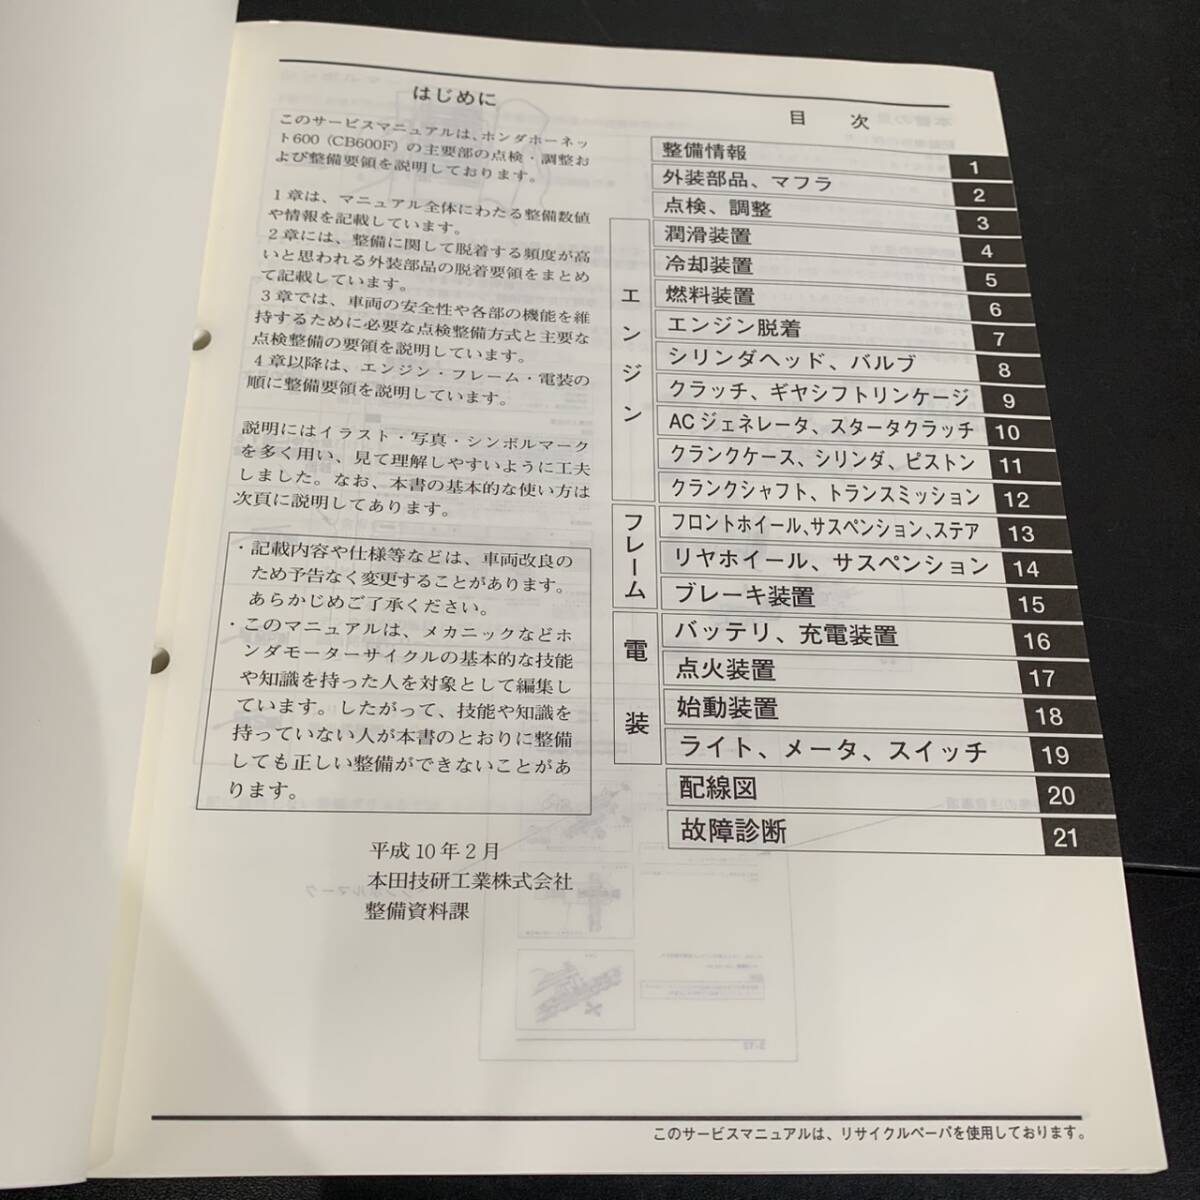 はじめに
このサービスマニュアルは、ホンダホーネッ
ト600 (CB600F) の主要部の点検・調整お
よび整備要領を説明しております。
1章は、マニュアル全体にわたる整備数値
や情報を記載しています。
2章には、整備に関して脱着する頻度が高
いと思われる外装部品の脱着要領をまとめ
て記載しています。
3章では、車両の安全性や各部の機能を維
持するために必要な点検整備方式と主要な
点検整備の要領を説明しています。
4章以降は、エンジン・フレーム・電装の
順に整備要領を説明しています。
説明にはイラスト・写真・シンボルマーク
を多く用い、見て理解しやすいように工夫
しました。なお、本書の基本的な使い方は
次頁に説明してあります。
・記載内容や仕様等などは、車両改良の
ため予告なく変更することがあります。
あらかじめご了承ください。
・このマニュアルは、メカニックなどホ
ンダモーターサイクルの基本的な技能
や知識を持った人を対象として編集し
ています。したがって、技能や知識を
持っていない人が本書のとおりに整備
しても正しい整備ができないことがあ
ります。
平成10年2月
本田技研工業株式会社
整備資料課
目 次
整備情報 1
外装部品、マフラ 2
点検、調整 3
エンジン
潤滑装置 4
冷却装置 5
燃料装置 6
エンジン脱着 7
シリンダヘッド、バルブ 8
クラッチ、ギヤシフトリンケージ 9
ACジェネレータ、スタータクラッチ 10
クランクケース、シリンダ、ピストン 11
クランクシャフト、トランスミッション 12
フレーム
フロントホイール、サスペンション、ステア 13
リヤホイール、サスペンション 14
ブレーキ装置 15
電装
バッテリ、充電装置 16
点火装置 17
始動装置 18
ライト、メータ、スイッチ 19
配線図 20
故障診断 21
このサービスマニュアルは、リサイクルペーパを使用しております。